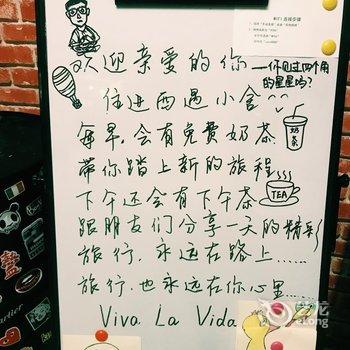 欢迎亲爱的你
——你见过四个角的星星吗?
住进西遇小舍
每早,会有免费奶茶
奶茶
带你踏上新的旅程
下午还会有下午茶
TEA
跟朋友们分享一天的精彩
旅行,永远在路上......
旅行.也永远在你心里...
Viva La Vida
艺龙
eLong